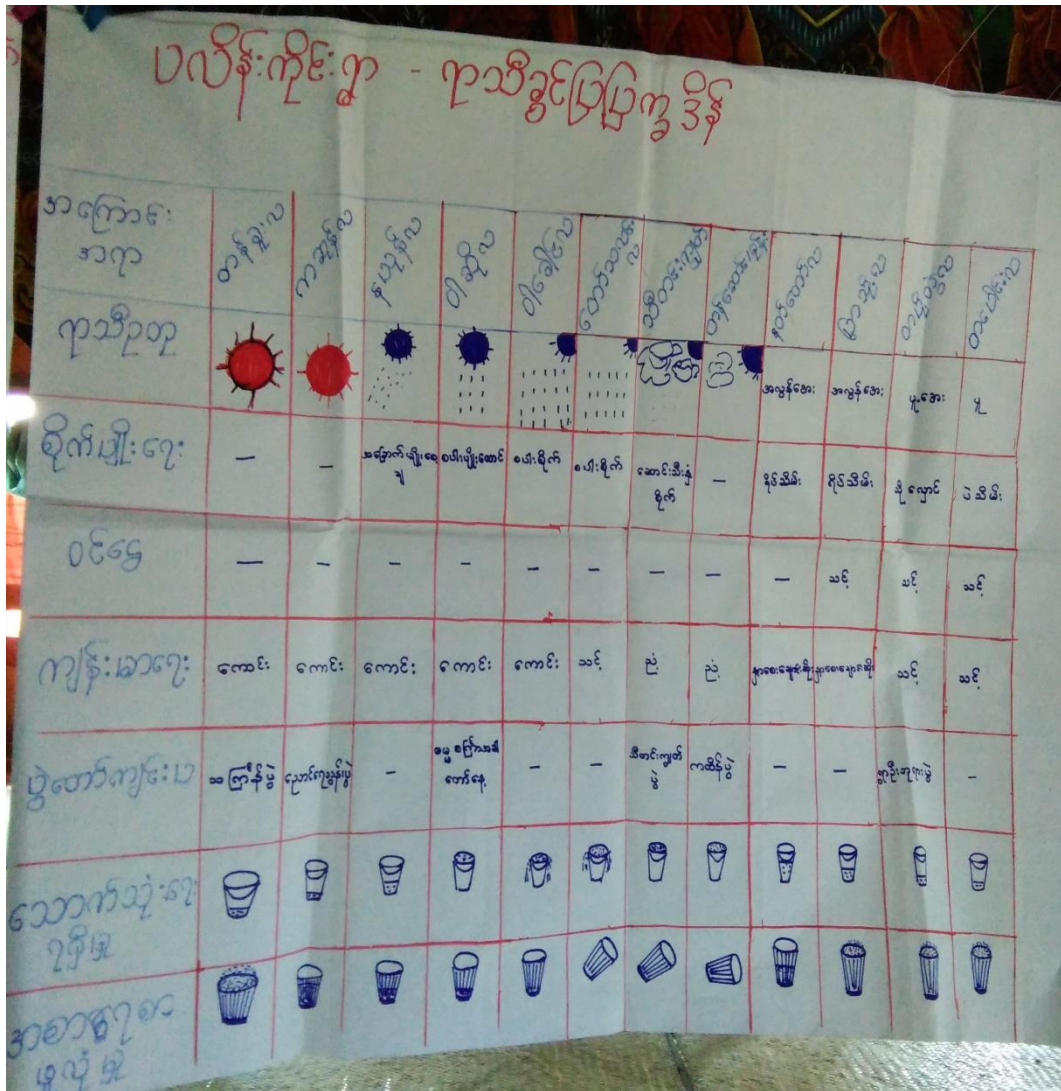 ပလိန်းကိုင်းရွာ - ရာသီခွင်ပြပြက္ခဒိန်
အကြောင်း
အရာ
တန်ခူးလ ကဆုန်လ နယုန်လ ဝါဆိုလ ဝါခေါင်လ တော်သလင်းလ သီတင်းကျွတ် တန်ဆောင်မုန်း နတ်တော်လ ပြာသိုလ တပို့တွဲလ တပေါင်းလ
ရာသီဥတု အလွန်အေး အလွန်အေး ပူ၊အေး ပူ
စိုက်ပျိုးရေး - - စပါးပျိုးထောင် စပါးစိုက် စပါးစိုက် ဆောင်းသီးနှံ
စိုက် - ရိပ်သိမ်း ရိပ်သိမ်း နို့လှောင် ပဲသိမ်း
ဝင်ငွေ - - - - - - - - - သင့် သင့် သင့်
ကျန်းမာရေး ကောင်း ကောင်း ကောင်း ကောင်း ကောင်း သင့် ညံ့ ညံ့ နှာစေးချောင်းဆိုး နှာစေးချောင်းဆိုး သင့် သင့်
ပွဲတော်ကျင်းပ သင်္ကြန်ပွဲ ညောင်ရေသွန်းပွဲ - ဓမ္မစကြာအခါ
တော်နေ့ - - သီတင်းကျွတ်
ပွဲ ကထိန်ပွဲ - - ရွာဦးဘုရားပွဲ -
သောက်သုံးရေ
ရရှိမှု
အစားအစာ
ဖူလုံမှု